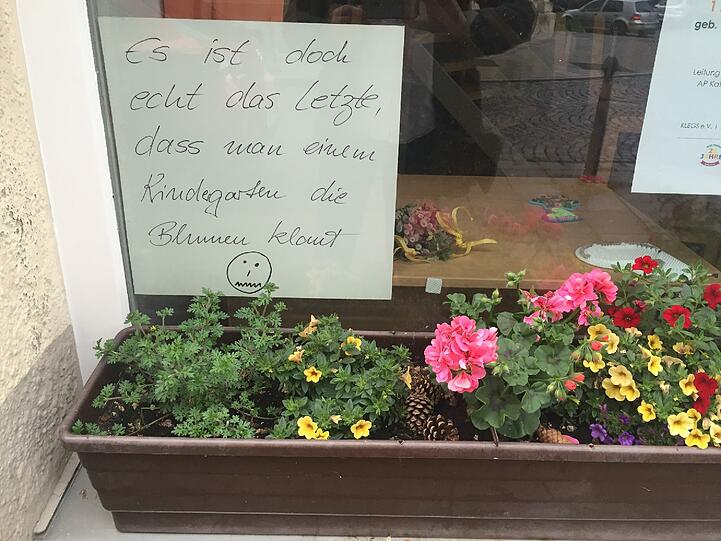 Es ist doch
echt das Letzte,
dass man einem
Kindergarten die
Blumen klaut
1
geb.
Leitung
AP Kat
KLEGS e.V. | 
25
JAHRE